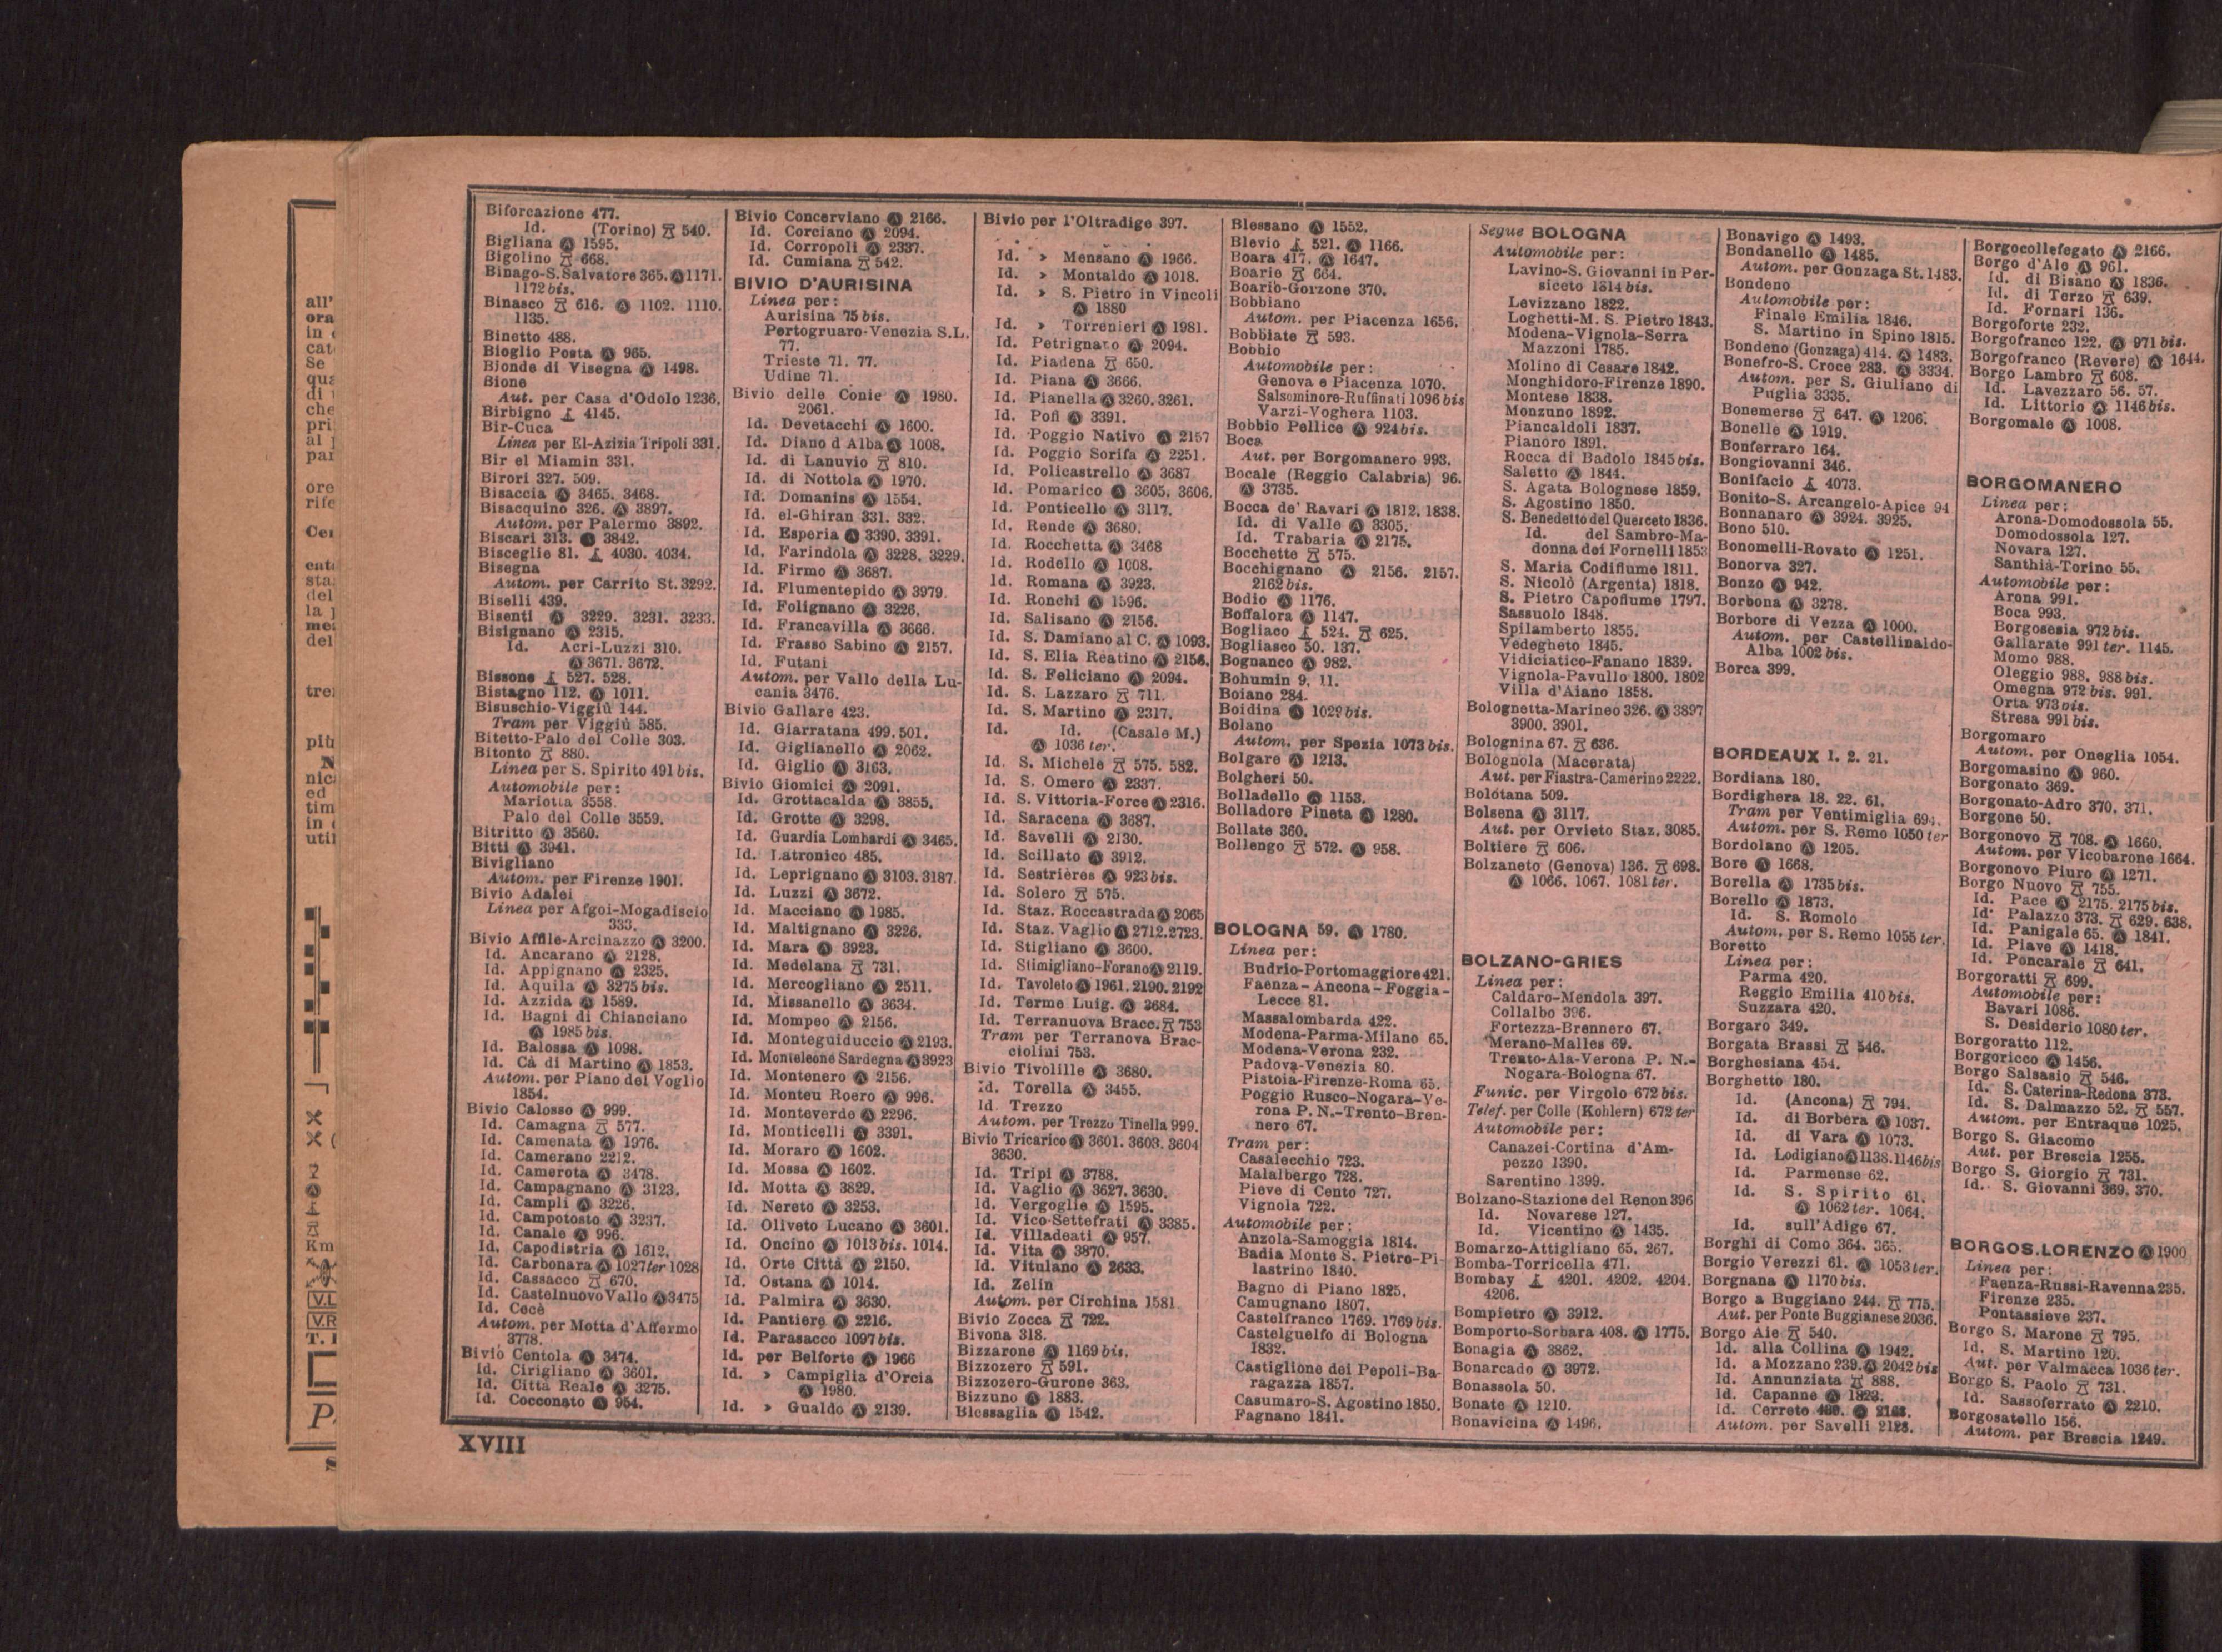 Biforcazione 477.
Id. (Torino) 540.
Bigliana Ⓐ 1595.
Bigolino 668.
Binago-S. Salvatore 365. Ⓐ 1171.
1172 bis.
Binasco 616. Ⓐ 1102. 1110.
1135.
Binetto 488.
Bioglio Posta Ⓐ 965.
Bionde di Visegna Ⓐ 1498.
Bione
Aut. per Casa d'Odolo 1236.
Birbigno 4145.
Bir-Cuca
Linea per El-Azizia Tripoli 331.
Bir el Miamin 331.
Birori 327. 509.
Bisaccia Ⓐ 3465. 3468.
Bisacquino 326. Ⓐ 3897.
Autom. per Palermo 3892.
Biscari 313. Ⓐ 3842.
Bisceglie 81. 4030. 4034.
Bisegna
Autom. per Carrito St. 3292.
Biselli 439.
Bisenti Ⓐ 3229. 3231. 3233.
Bisignano Ⓐ 2315.
Id. Acri-Luzzi 310.
Ⓐ 3671. 3672.
Bissone 527. 528.
Bistagno 112. Ⓐ 1011.
Bisuschio-Viggiù 144.
Tram per Viggiù 585.
Bitetto-Palo del Colle 303.
Bitonto 880.
Linea per S. Spirito 491 bis.
Automobile per:
Mariotta 3558.
Palo del Colle 3559.
Bitritto Ⓐ 3560.
Bitti Ⓐ 3941.
Bivigliano
Autom. per Firenze 1901.
Bivio Adalei
Linea per Afgoi-Mogadiscio
333.
Bivio Affile-Arcinazzo Ⓐ 3200.
Id. Ancarano Ⓐ 2128.
Id. Appignano Ⓐ 2325.
Id. Aquila Ⓐ 3275 bis.
Id. Azzida Ⓐ 1589.
Id. Bagni di Chianciano
Ⓐ 1985 bis.
Id. Balossa Ⓐ 1098.
Id. Cà di Martino Ⓐ 1853.
Autom. per Piano del Voglio
1854.
Bivio Calosso Ⓐ 999.
Id. Camagna 577.
Id. Camenata Ⓐ 1976.
Id. Camerano 2212.
Id. Camerota Ⓐ 3478.
Id. Campagnano Ⓐ 3123.
Id. Campli Ⓐ 3226.
Id. Campotosto Ⓐ 3237.
Id. Canale Ⓐ 996.
Id. Capodistria Ⓐ 1612.
Id. Carbonara Ⓐ 1027 ter 1028
Id. Cassacco 670.
Id. Castelnuovo Vallo Ⓐ 3475
Id. Cecè
Autom. per Motta d'Affermo
3778.
Bivio Centola Ⓐ 3474.
Id. Cirigliano Ⓐ 3601.
Id. Città Reale Ⓐ 3275.
Id. Cocconato Ⓐ 954.
Bivio Concerviano Ⓐ 2166.
Id. Corciano Ⓐ 2094.
Id. Corropoli Ⓐ 2337.
Id. Cumiana 542.
BIVIO D'AURISINA
Linea per:
Aurisina 75 bis.
Portogruaro-Venezia S.L.
77.
Trieste 71. 77.
Udine 71.
Bivio delle Conie Ⓐ 1980.
2061.
Id. Devetacchi Ⓐ 1600.
Id. Diano d Alba Ⓐ 1008.
Id. di Lanuvio 810.
Id. di Nottola Ⓐ 1970.
Id. Domanins Ⓐ 1554.
Id. el-Ghiran 331. 332.
Id. Esperia Ⓐ 3390. 3391.
Id. Farindola Ⓐ 3228. 3229.
Id. Firmo Ⓐ 3687.
Id. Flumentepido Ⓐ 3979.
Id. Folignano Ⓐ 3226.
Id. Francavilla Ⓐ 3666.
Id. Frasso Sabino Ⓐ 2157.
Id. Futani
Autom. per Vallo della Lu-
cania 3476.
Bivio Gallare 423.
Id. Giarratana 499. 501.
Id. Giglianello Ⓐ 2062.
Id. Giglio Ⓐ 3163.
Bivio Giomici Ⓐ 2091.
Id. Grottacalda Ⓐ 3855.
Id. Grotte Ⓐ 3298.
Id. Guardia Lombardi Ⓐ 3465.
Id. Latronico 485.
Id. Leprignano Ⓐ 3103. 3187.
Id. Luzzi Ⓐ 3672.
Id. Macciano Ⓐ 1985.
Id. Maltignano Ⓐ 3226.
Id. Mara Ⓐ 3923.
Id. Medelana 731.
Id. Mercogliano Ⓐ 2511.
Id. Missanello Ⓐ 3634.
Id. Mompeo Ⓐ 2156.
Id. Monteguiduccio Ⓐ 2193.
Id. Monteleone Sardegna Ⓐ 3923
Id. Montenero Ⓐ 2156.
Id. Monteu Roero Ⓐ 996.
Id. Monteverde Ⓐ 2296.
Id. Monticelli Ⓐ 3391.
Id. Moraro Ⓐ 1602.
Id. Mossa Ⓐ 1602.
Id. Motta Ⓐ 3829.
Id. Nereto Ⓐ 3253.
Id. Oliveto Lucano Ⓐ 3601.
Id. Oncino Ⓐ 1013 bis. 1014.
Id. Orte Città Ⓐ 2150.
Id. Ostana Ⓐ 1014.
Id. Palmira Ⓐ 3630.
Id. Pantiere Ⓐ 2216.
Id. Parasacco 1097 bis.
Id. per Belforte Ⓐ 1966
Id. » Campiglia d'Orcia
Ⓐ 1980.
Id. » Gualdo Ⓐ 2139.
Bivio per l'Oltradige 397.
Id. » Mensano Ⓐ 1966.
Id. » Montaldo Ⓐ 1018.
Id. » S. Pietro in Vincoli
Ⓐ 1880
Id. » Torrenieri Ⓐ 1981.
Id. Petrignano Ⓐ 2094.
Id. Piadena 650.
Id. Piana Ⓐ 3666.
Id. Pianella Ⓐ 3260. 3261.
Id. Pofi Ⓐ 3391.
Id. Poggio Nativo Ⓐ 2157
Id. Poggio Sorifa Ⓐ 2251.
Id. Policastrello Ⓐ 3687
Id. Pomarico Ⓐ 3605. 3606.
Id. Ponticello Ⓐ 3117.
Id. Rende Ⓐ 3680.
Id. Rocchetta Ⓐ 3468
Id. Rodello Ⓐ 1008.
Id. Romana Ⓐ 3923.
Id. Ronchi Ⓐ 1596.
Id. Salisano Ⓐ 2156.
Id. S. Damiano al C. Ⓐ 1093.
Id. S. Elia Reatino Ⓐ 2156.
Id. S. Feliciano Ⓐ 2094.
Id. S. Lazzaro 711.
Id. S. Martino Ⓐ 2317.
Id. Id. (Casale M.)
Ⓐ 1036 ter.
Id. S. Michele 575. 582.
Id. S. Omero Ⓐ 2337.
Id. S. Vittoria-Force Ⓐ 2316.
Id. Saracena Ⓐ 3687.
Id. Savelli Ⓐ 2130.
Id. Scillato Ⓐ 3912.
Id. Sestrières Ⓐ 923 bis.
Id. Solero 575.
Id. Staz. Roccastrada Ⓐ 2065
Id. Staz. Vaglio Ⓐ 2712. 2723.
Id. Stigliano Ⓐ 3600.
Id. Stimigliano-Forano Ⓐ 2119.
Id. Tavoleto Ⓐ 1961. 2190. 2192
Id. Terme Luig. Ⓐ 3684.
Id. Terranuova Bracc. 753
Tram per Terranova Brac-
ciolini 753.
Bivio Tivolille Ⓐ 3680.
Id. Torella Ⓐ 3455.
Id. Trezzo
Autom. per Trezzo Tinella 999.
Bivio Tricarico Ⓐ 3601. 3603. 3604
3630.
Id. Tripi Ⓐ 3788.
Id. Vaglio Ⓐ 3627. 3630.
Id. Vergoglie Ⓐ 1595.
Id. Vico-Settefrati Ⓐ 3385.
Id. Villadeati Ⓐ 957.
Id. Vita Ⓐ 3870.
Id. Vitulano Ⓐ 2633.
Id. Zelin
Autom. per Circhina 1581.
Bivio Zocca 722.
Bivona 318.
Bizzarone Ⓐ 1169 bis.
Bizzozero 591.
Bizzozero-Gurone 363.
Bizzuno Ⓐ 1883.
Blessaglia Ⓐ 1542.
Blessano Ⓐ 1552.
Blevio 521. Ⓐ 1166.
Boara 417. Ⓐ 1647.
Boario 664.
Boario-Gorzone 370.
Bobbiano
Autom. per Piacenza 1656.
Bobbiate 593.
Bobbio
Automobile per:
Genova e Piacenza 1070.
Salsominore-Ruffinati 1096 bis
Varzi-Voghera 1103.
Bobbio Pellice Ⓐ 924 bis.
Boca
Aut. per Borgomanero 993.
Bocale (Reggio Calabria) 96.
Ⓐ 3735.
Bocca de' Ravari Ⓐ 1812. 1838.
Id. di Valle Ⓐ 3305.
Id. Trabaria Ⓐ 2175.
Bocchette 575.
Bocchignano Ⓐ 2156. 2157.
2162 bis.
Bodio Ⓐ 1176.
Boffalora Ⓐ 1147.
Bogliaco 524. 625.
Bogliasco 50. 137.
Bognanco Ⓐ 982.
Bohumin 9. 11.
Boiano 284.
Boidina Ⓐ 1029 bis.
Bolano
Autom. per Spezia 1073 bis.
Bolgare Ⓐ 1213.
Bolgheri 50.
Bolladello Ⓐ 1153.
Bolladore Pineta Ⓐ 1280.
Bollate 360.
Bollengo 572. Ⓐ 958.
BOLOGNA 59. Ⓐ 1780.
Linea per:
Budrio-Portomaggiore 421.
Faenza-Ancona-Foggia-
Lecce 81.
Massalombarda 422.
Modena-Parma-Milano 65.
Modena-Verona 232.
Padova-Venezia 80.
Pistoia-Firenze-Roma 65.
Poggio Rusco-Nogara-Ve-
rona P. N.-Trento-Bren-
nero 67.
Tram per:
Casalecchio 723.
Malalbergo 728.
Pieve di Cento 727.
Vignola 722.
Automobile per:
Anzola-Samoggia 1814.
Badia Monte S. Pietro-Pi-
lastrino 1840.
Bagno di Piano 1825.
Camugnano 1807.
Castelfranco 1769. 1769 bis.
Castelguelfo di Bologna
1832.
Castiglione dei Pepoli-Ba-
ragazza 1857.
Casumaro-S. Agostino 1850.
Fagnano 1841.
Segue BOLOGNA
Automobile per:
Lavino-S. Giovanni in Per-
siceto 1814 bis.
Levizzano 1822.
Loghetti-M. S. Pietro 1843.
Modena-Vignola-Serra
Mazzoni 1785.
Molino di Cesare 1842.
Monghidoro-Firenze 1890.
Montese 1838.
Monzuno 1892.
Piancaldoli 1837.
Pianoro 1891.
Rocca di Badolo 1845 bis.
Saletto Ⓐ 1844.
S. Agata Bolognese 1859.
S. Agostino 1850.
S. Benedetto del Querceto 1836.
Id. del Sambro-Ma-
donna dei Fornelli 1853
S. Maria Codifiume 1811.
S. Nicolò (Argenta) 1818.
S. Pietro Capofiume 1797.
Sassuolo 1848.
Spilamberto 1855.
Vedegheto 1845.
Vidiciatico-Fanano 1839.
Vignola-Pavullo 1800. 1802
Villa d'Aiano 1858.
Bolognetta-Marineo 326. Ⓐ 3897
3900. 3901.
Bolognina 67. 636.
Bolognola (Macerata)
Aut. per Fiastra-Camerino 2222.
Bolotana 509.
Bolsena Ⓐ 3117.
Aut. per Orvieto Staz. 3085.
Boltiere 606.
Bolzaneto (Genova) 136. 698.
Ⓐ 1066. 1067. 1081 ter.
BOLZANO-GRIES
Linea per:
Caldaro-Mendola 397.
Collalbo 396.
Fortezza-Brennero 67.
Merano-Malles 69.
Trento-Ala-Verona P. N.-
Nogara-Bologna 67.
Funic. per Virgolo 672 bis.
Telef. per Colle (Kohlern) 672 ter
Automobile per:
Canazei-Cortina d'Am-
pezzo 1390.
Sarentino 1399.
Bolzano-Stazione del Renon 396
Id. Novarese 127.
Id. Vicentino Ⓐ 1435.
Bomarzo-Attigliano 65. 267.
Bomba-Torricella 471.
Bombay 4201. 4202. 4204.
4206.
Bompietro Ⓐ 3912.
Bomporto-Sorbara 408. Ⓐ 1775.
Bonagia Ⓐ 3862.
Bonarcado Ⓐ 3972.
Bonassola 50.
Bonate Ⓐ 1210.
Bonavicina Ⓐ 1496.
Bonavigo Ⓐ 1493.
Bondanello Ⓐ 1485.
Autom. per Gonzaga St. 1483.
Bondeno
Automobile per:
Finale Emilia 1846.
S. Martino in Spino 1815.
Bondeno (Gonzaga) 414. Ⓐ 1483.
Bonefro-S. Croce 283. Ⓐ 3334.
Autom. per S. Giuliano di
Puglia 3335.
Bonemerse 647. Ⓐ 1206.
Bonelle Ⓐ 1919.
Bonferraro 164.
Bongiovanni 346.
Bonifacio 4073.
Bonito-S. Arcangelo-Apice 94
Bonnanaro Ⓐ 3924. 3925.
Bono 510.
Bonomelli-Rovato Ⓐ 1251.
Bonorva 327.
Bonzo Ⓐ 942.
Borbona Ⓐ 3278.
Borbore di Vezza Ⓐ 1000.
Autom. per Castellinaldo-
Alba 1002 bis.
Borca 399.
BORDEAUX 1. 2. 21.
Bordiana 180.
Bordighera 18. 22. 61.
Tram per Ventimiglia 694.
Autom. per S. Remo 1050 ter
Bordolano Ⓐ 1205.
Bore Ⓐ 1668.
Borella Ⓐ 1735 bis.
Borello Ⓐ 1873.
Id. S. Romolo
Autom. per S. Remo 1055 ter.
Boretto
Linea per:
Parma 420.
Reggio Emilia 410 bis.
Suzzara 420.
Borgaro 349.
Borgata Brassi 546.
Borghesiana 454.
Borghetto 180.
Id. (Ancona) 794.
Id. di Borbera Ⓐ 1037.
Id. di Vara Ⓐ 1073.
Id. Lodigiano Ⓐ 1138. 1146 bis
Id. Parmense 62.
Id. S. Spirito 61.
Ⓐ 1062 ter. 1064.
Id. sull'Adige 67.
Borghi di Como 364. 365.
Borgio Verezzi 61. Ⓐ 1053 ter.
Borgnana Ⓐ 1170 bis.
Borgo a Buggiano 244. 775.
Aut. per Ponte Buggianese 2036.
Borgo Aie 540.
Id. alla Collina Ⓐ 1942.
Id. a Mozzano 239. Ⓐ 2042 bis
Id. Annunziata 888.
Id. Capanne Ⓐ 1823.
Id. Cerreto Ⓐ
Autom. per Savelli 2128.
Borgocollefegato Ⓐ 2166.
Borgo d'Ale Ⓐ 961.
Id. di Bisano Ⓐ 1836.
Id. di Terzo 639.
Id. Fornari 136.
Borgoforte 232.
Borgofranco 122. Ⓐ 971 bis.
Borgofranco (Revere) Ⓐ 1644.
Borgo Lambro 608.
Id. Lavezzaro 56. 57.
Id. Littorio Ⓐ 1146 bis.
Borgomale Ⓐ 1008.
BORGOMANERO
Linea per:
Arona-Domodossola 55.
Domodossola 127.
Novara 127.
Santhià-Torino 55.
Automobile per:
Arona 991.
Boca 993.
Borgosesia 972 bis.
Gallarate 991 ter. 1145.
Momo 988.
Oleggio 988. 988 bis.
Omegna 972 bis. 991.
Orta 973 bis.
Stresa 991 bis.
Borgomaro
Autom. per Oneglia 1054.
Borgomasino Ⓐ 960.
Borgonato 369.
Borgonato-Adro 370. 371.
Borgone 50.
Borgonovo 708. Ⓐ 1660.
Autom. per Vicobarone 1664.
Borgonovo Piuro Ⓐ 1271.
Borgo Nuovo 755.
Id. Pace Ⓐ 2175. 2175 bis.
Id. Palazzo 373. 629. 638.
Id. Panigale 65. Ⓐ 1841.
Id. Piave Ⓐ 1418.
Id. Poncarale 641.
Borgoratti 699.
Automobile per:
Bavari 1086.
S. Desiderio 1080 ter.
Borgoratto 112.
Borgoricco Ⓐ 1456.
Borgo Salsasio 546.
Id. S. Caterina-Redona 373.
Id. S. Dalmazzo 52. 557.
Autom. per Entraque 1025.
Borgo S. Giacomo
Aut. per Brescia 1255.
Borgo S. Giorgio 731.
Id. S. Giovanni 369. 370.
BORGO S. LORENZO Ⓐ 1900
Linea per:
Faenza-Russi-Ravenna 235.
Firenze 235.
Pontassieve 237.
Borgo S. Marone 795.
Id. S. Martino 120.
Aut. per Valmacca 1036 ter.
Borgo S. Paolo 731.
Id. Sassoferrato Ⓐ 2210.
Borgosatello 156.
Autom. per Brescia 1249.
XVIII